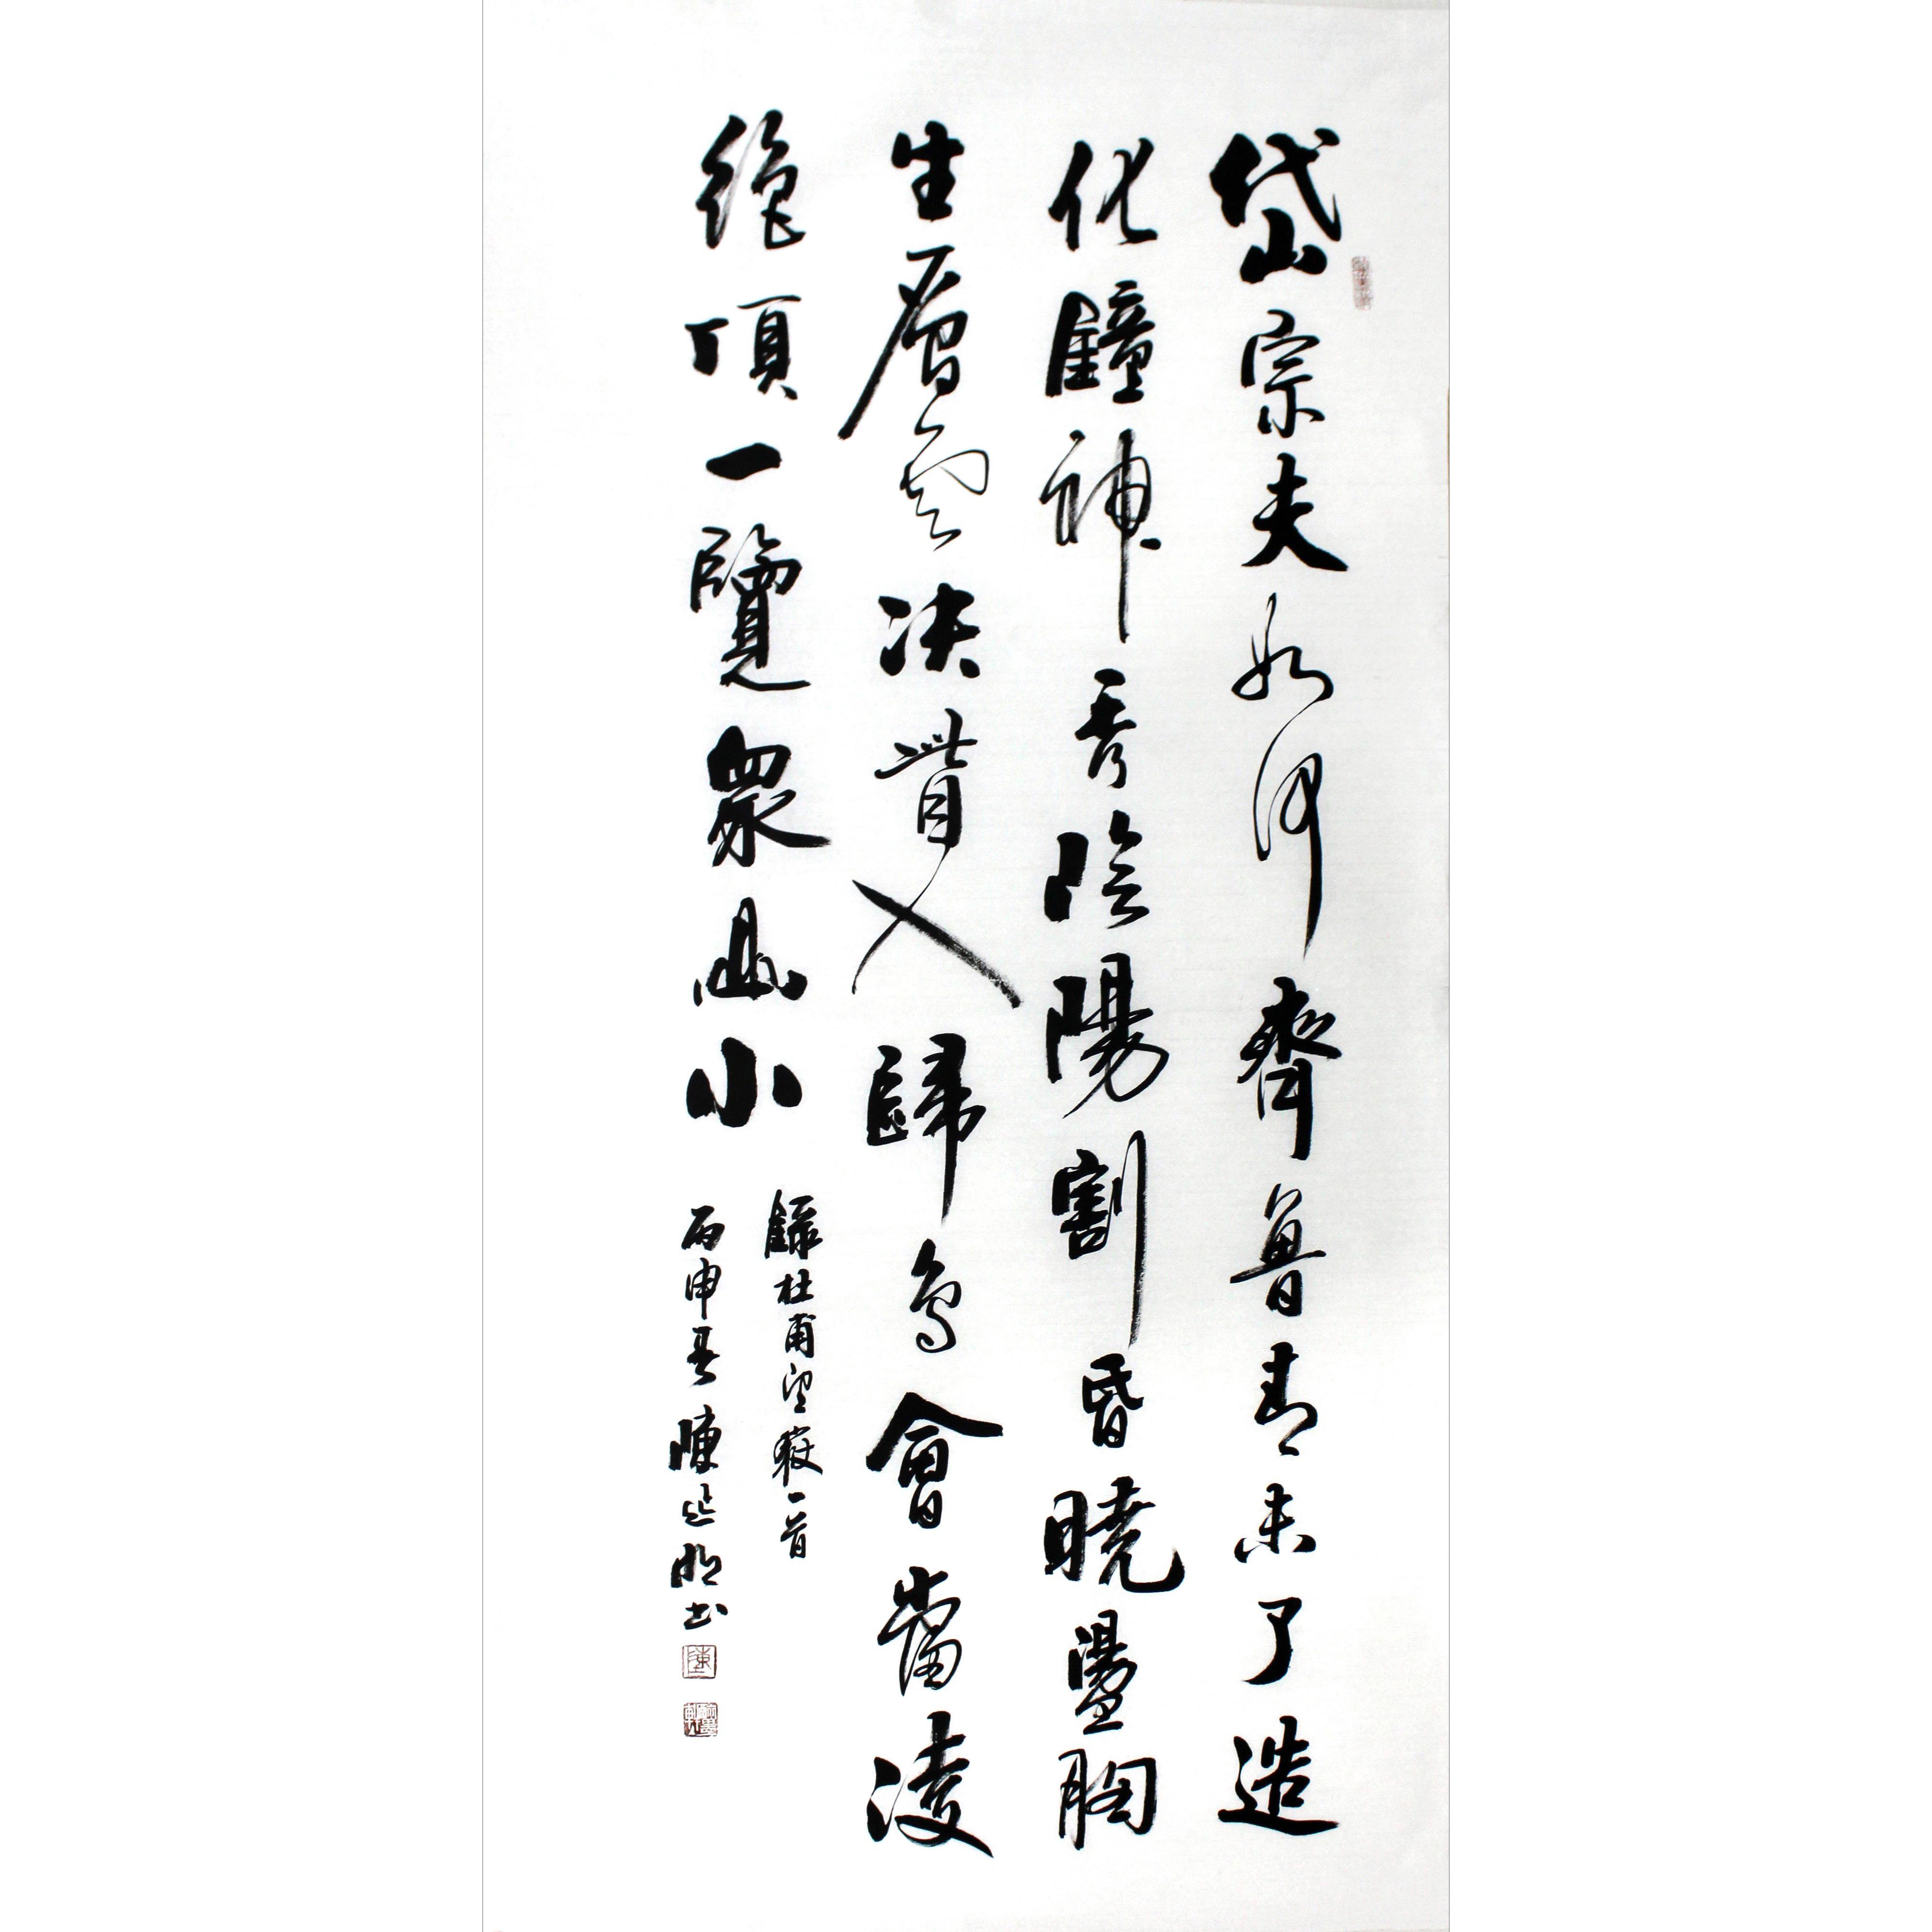 岱宗夫如何齊魯青未了造
化鐘神秀陰陽割昏曉盪胸
生層雲决眥入歸鳥會當凌
絶頂一覽衆山小
錄杜甫望嶽一首
丙申春陳明书